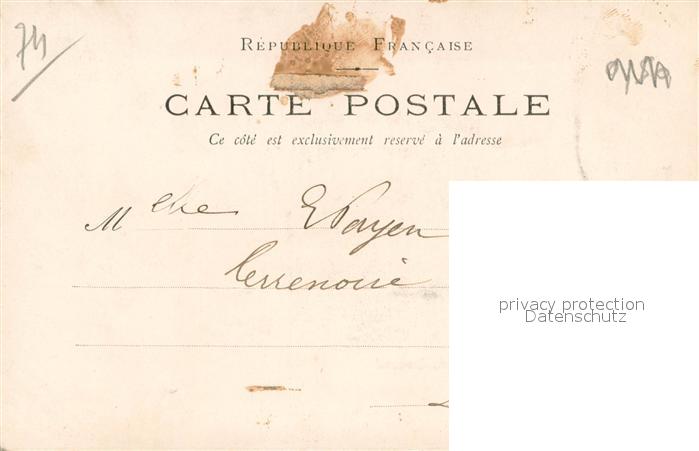 74
RÉPUBLIQUE FRANÇAISE
CARTE POSTALE
Ce côté est exclusivement reservé à l'adresse
Melle E Payen
Terrenoire
privacy protection
Datenschutz